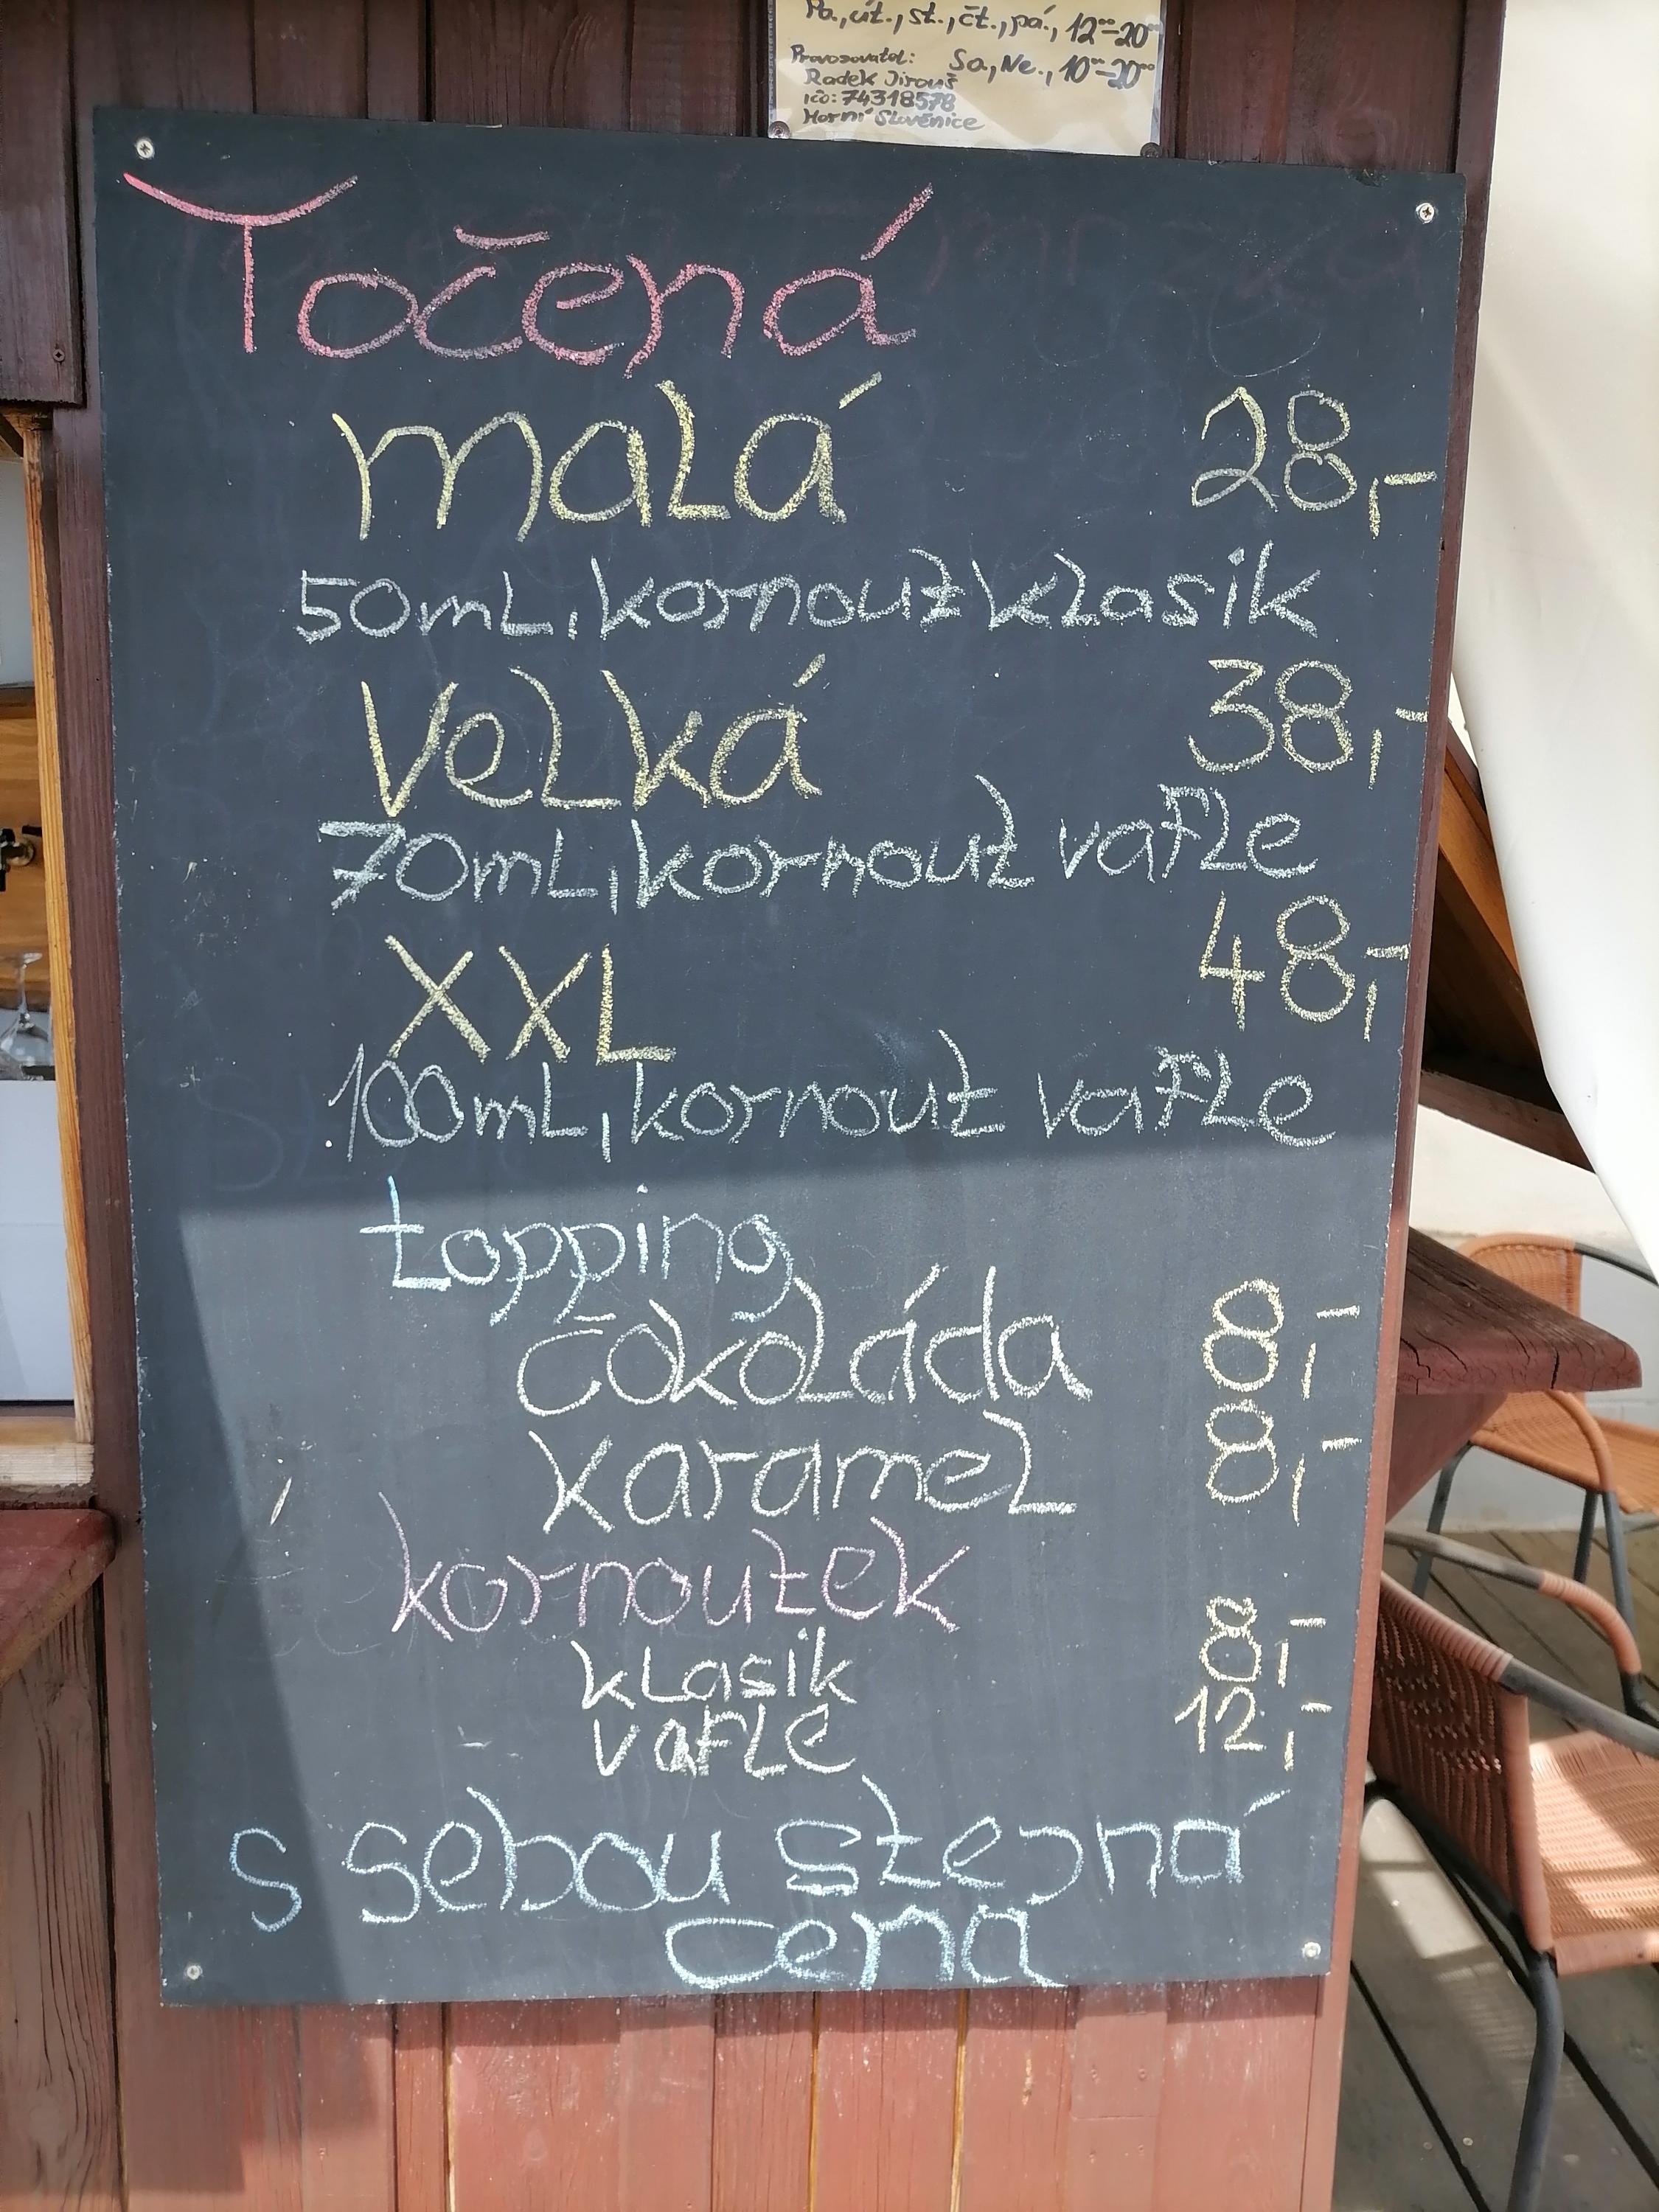 Po., út., st., čt., pá., 12⁰⁰-20⁰⁰
Provozovatel: So., Ne., 10⁰⁰-20⁰⁰
Radek Jirouš
ičo: 74318578
Horní Slověnice
Točená
malá 28,-
50ml, kornout klasik
velká 38,-
70ml, kornout vafle
XXL 48,-
100ml, kornout vafle
topping
čokoláda 8,-
karamel 8,-
kornoutek
klasik 8,-
vafle 12,-
s sebou stejná
cena